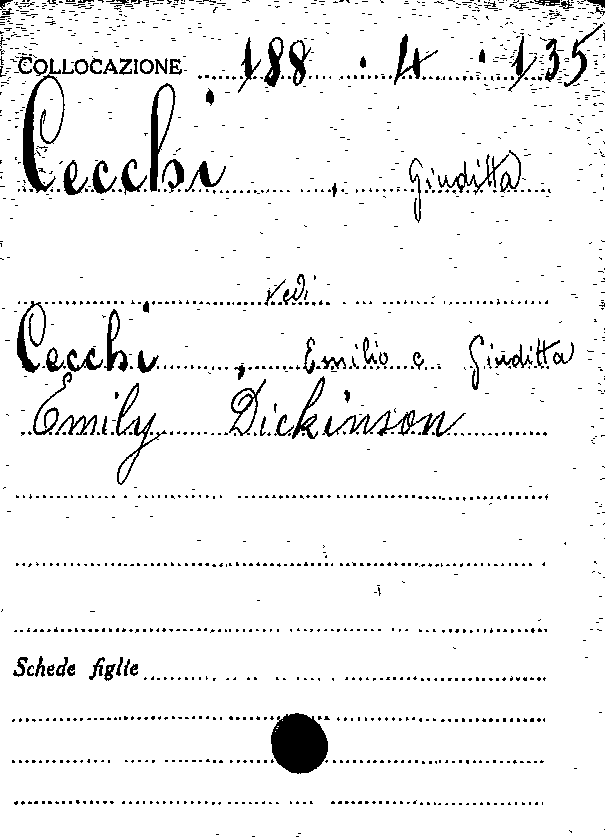 COLLOCAZIONE 188 . 4 . 135
Cecchi , Giuditta
vedi
Cecchi , Emilio e Giuditta
Emily Dickinson
Schede figlie